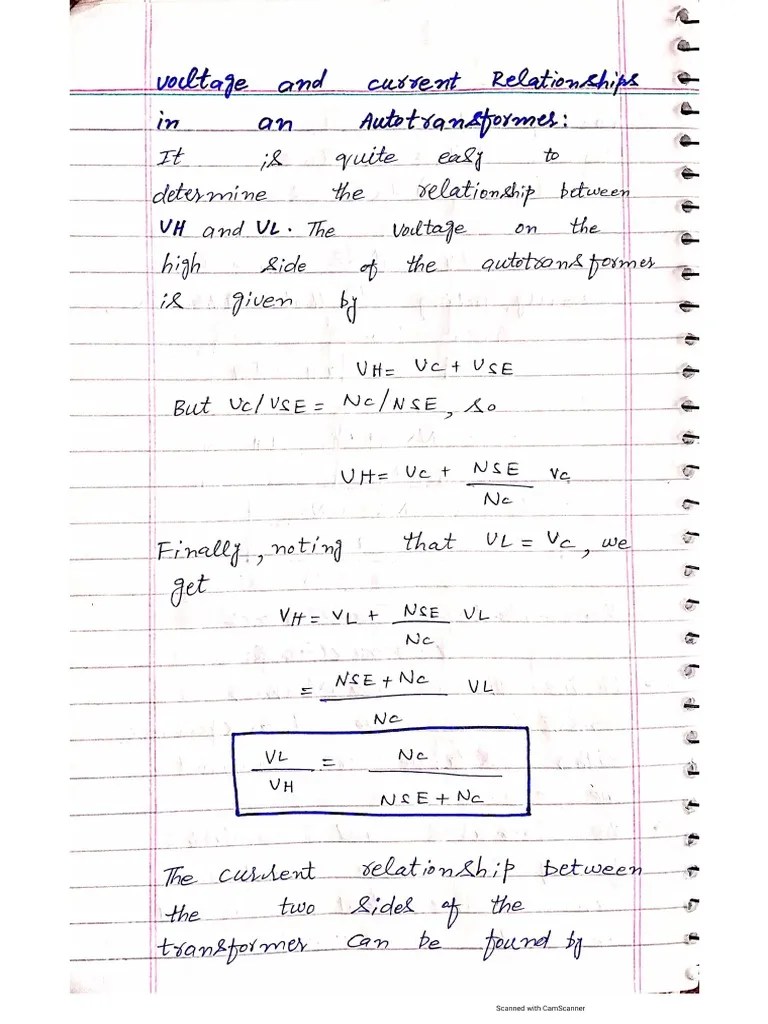 Voltage and current Relationships
in an Autotransformer:
It is quite easy to
determine the relationship between
VH and VL. The Voltage on the
high side of the autotransformer
is given by
VH = VC + VSE
But VC/VSE = NC/NSE, so
VH = VC + NSE/NC VC
Finally, noting that VL = VC, we
get
VH = VL + NSE/NC VL
= NSE + NC/NC VL
VL/VH = NC/NSE + NC
The current relationship between
the two sides of the
transformer can be found by
Scanned with CamScanner